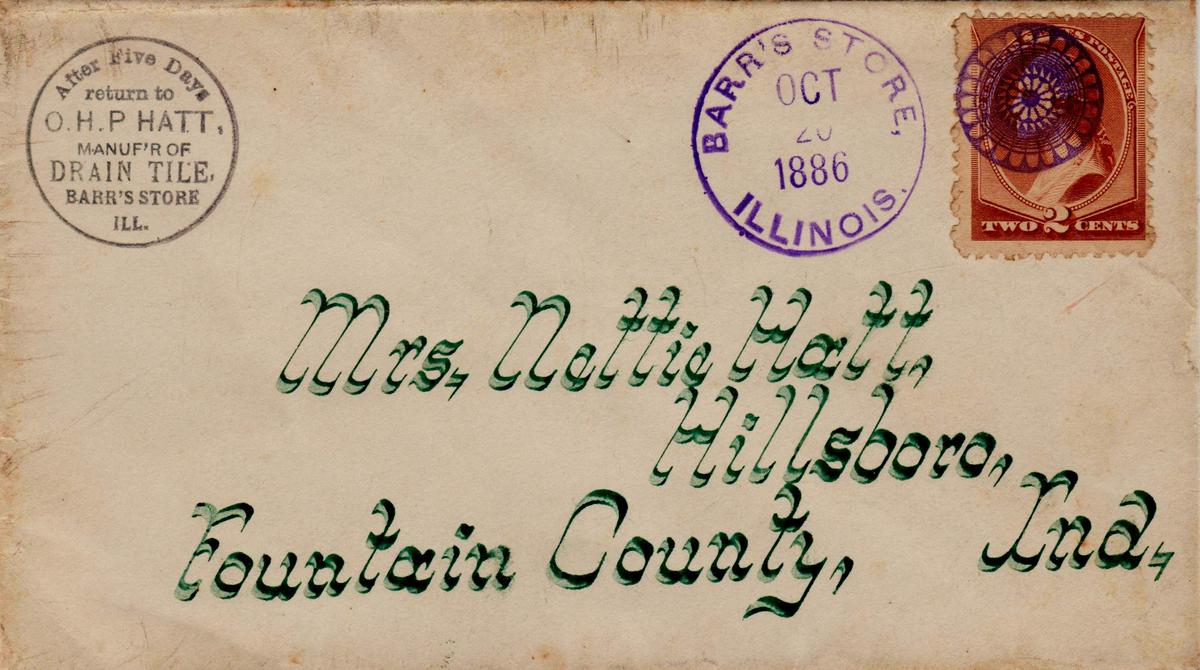 After Five Days
return to
O.H.P HATT,
MANUF'R OF
DRAIN TILE,
BARR'S STORE
ILL.
BARR'S STORE,
OCT
20
1886
ILLINOIS.
POSTAGE
TWO 2 CENTS
Mrs, Nettie Hatt,
Hillsboro,
Fountain County, Ind,